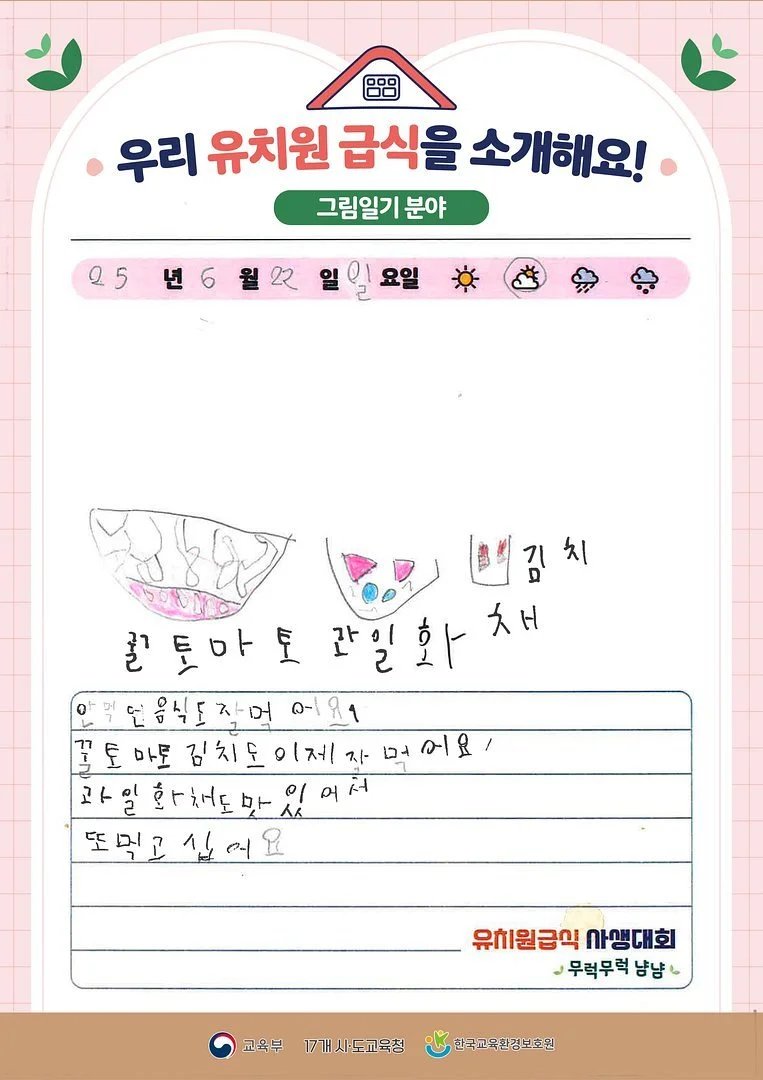 우리 유치원 급식을 소개해요!
그림일기 분야
25 년 6 월 22 일 일 요일
김치
꿀토마토 과일화채
안먹던음식도잘먹어요
꿀토마토김치도이제잘먹어요
과일화채도맛있어서
또먹고십어요
유치원급식 사생대회
무럭무럭 냠냠
교육부 17개 시·도교육청 한국교육환경보호원